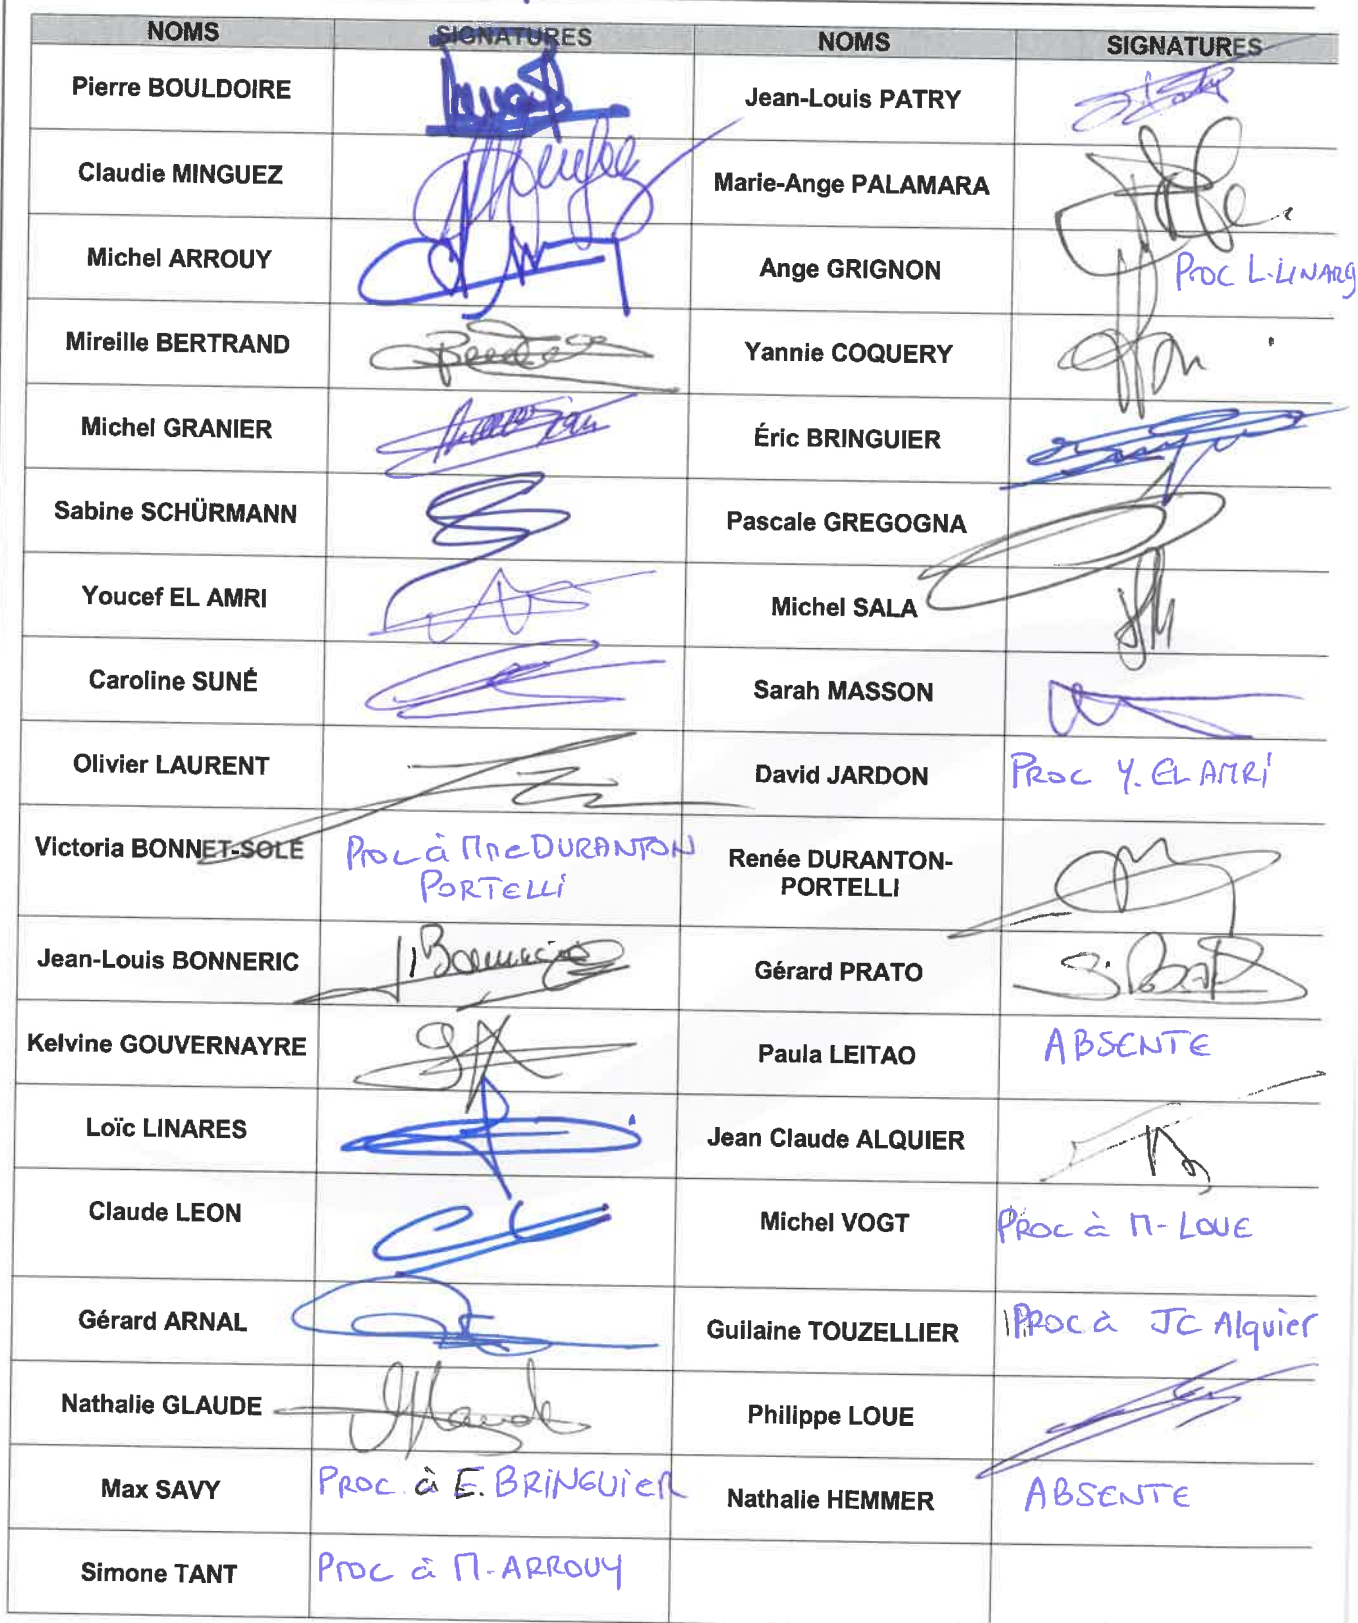 NOMS SIGNATURES NOMS SIGNATURES
Pierre BOULDOIRE Jean-Louis PATRY
Claudie MINGUEZ Marie-Ange PALAMARA
Michel ARROUY Ange GRIGNON Proc L.LINARES
Mireille BERTRAND Yannie COQUERY
Michel GRANIER Éric BRINGUIER
Sabine SCHÜRMANN Pascale GREGOGNA
Youcef EL AMRI Michel SALA
Caroline SUNÉ Sarah MASSON
Olivier LAURENT David JARDON PROC Y. EL AMRI
Victoria BONNET-SOLÉ Proc à Mme DURANTON
PORTELLI
Renée DURANTON-
PORTELLI
Jean-Louis BONNERIC Gérard PRATO
Kelvine GOUVERNAYRE Paula LEITAO ABSENTE
Loïc LINARES Jean Claude ALQUIER
Claude LEON Michel VOGT PROC à M-LOUE
Gérard ARNAL Guilaine TOUZELLIER PROC à JC Alquier
Nathalie GLAUDE Philippe LOUE
Max SAVY PROC à E. BRINGUIER Nathalie HEMMER ABSENTE
Simone TANT PROC à M-ARROUY